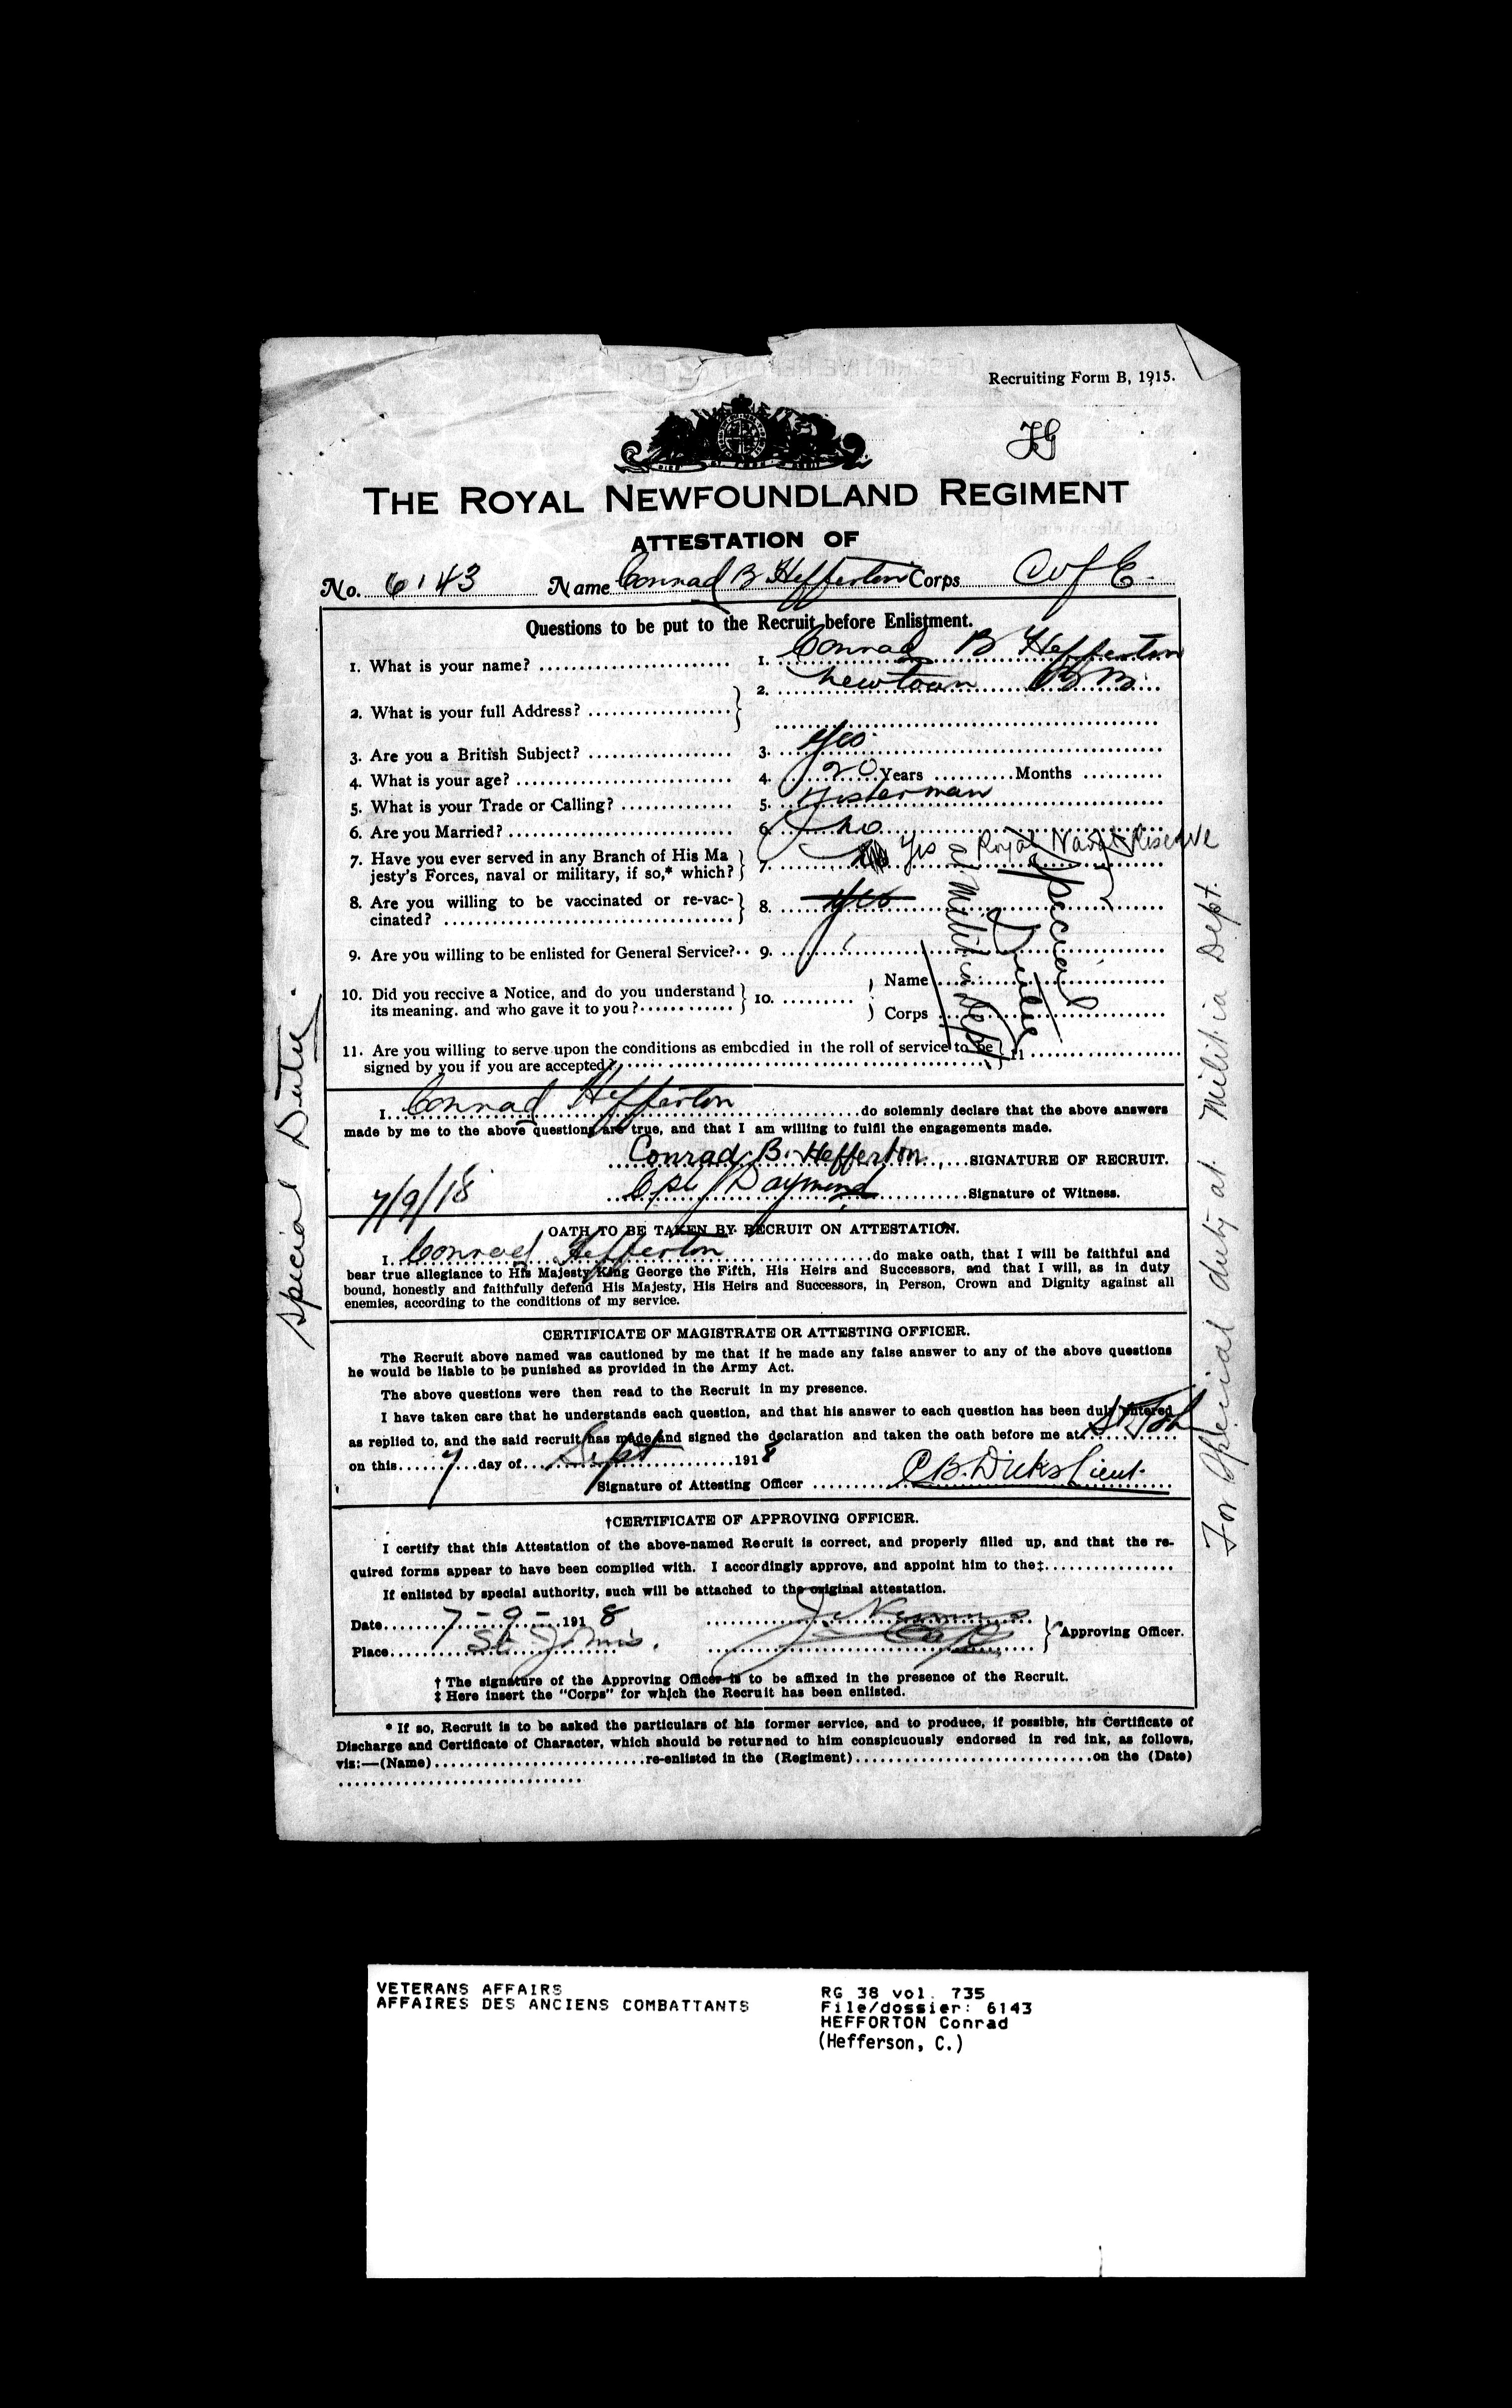 Recruiting Form B, 1915.
THE ROYAL NEWFOUNDLAND REGIMENT
ATTESTATION OF
No. 6143 Name Conrad B Hefferton Corps C of E.
Questions to be put to the Recruit before Enlistment.
1. What is your name? 1. Conrad B Hefferton
2. What is your full Address? 2. Newtown B B
3. Are you a British Subject? 3. Yes
4. What is your age? 4. 20 Years Months
5. What is your Trade or Calling? 5. Fisherman
6. Are you Married? 6. No
7. Have you ever served in any Branch of His Ma
jesty's Forces, naval or military, if so,* which? 7. Yes Royal Naval Reserve
8. Are you willing to be vaccinated or re-vac-
cinated? 8. Yes
9. Are you willing to be enlisted for General Service? 9.
10. Did you receive a Notice, and do you understand
its meaning. and who gave it to you? 10. Name
Corps
Special Duties
at Militia Dept
11. Are you willing to serve upon the conditions as embodied in the roll of service to be
signed by you if you are accepted? 11
I Conrad Hefferton do solemnly declare that the above answers
made by me to the above questions are true, and that I am willing to fulfil the engagements made.
Conrad B. Hefferton SIGNATURE OF RECRUIT.
7/9/18 Cpl Raymond Signature of Witness.
OATH TO BE TAKEN BY RECRUIT ON ATTESTATION.
I Conrad Hefferton do make oath, that I will be faithful and
bear true allegiance to His Majesty King George the Fifth, His Heirs and Successors, and that I will, as in duty
bound, honestly and faithfully defend His Majesty, His Heirs and Successors, in Person, Crown and Dignity against all
enemies, according to the conditions of my service.
CERTIFICATE OF MAGISTRATE OR ATTESTING OFFICER.
The Recruit above named was cautioned by me that if he made any false answer to any of the above questions
he would be liable to be punished as provided in the Army Act.
The above questions were then read to the Recruit in my presence.
I have taken care that he understands each question, and that his answer to each question has been duly entered
as replied to, and the said recruit has made and signed the declaration and taken the oath before me at
on this 7 day of Sept 1918
Signature of Attesting Officer C B. Dicks Lieut.
†CERTIFICATE OF APPROVING OFFICER.
I certify that this Attestation of the above-named Recruit is correct, and properly filled up, and that the re-
quired forms appear to have been complied with. I accordingly approve, and appoint him to the‡
If enlisted by special authority, such will be attached to the original attestation.
Date 7-9-1918
Place St John's. Capt Approving Officer.
† The signature of the Approving Officer is to be affixed in the presence of the Recruit.
‡ Here insert the "Corps" for which the Recruit has been enlisted.
* If so, Recruit is to be asked the particulars of his former service, and to produce, if possible, his Certificate of
Discharge and Certificate of Character, which should be returned to him conspicuously endorsed in red ink, as follows,
viz:—(Name) re-enlisted in the (Regiment) on the (Date)
Special Dutie.
For Special duty at Militia Dept.
VETERANS AFFAIRS
AFFAIRES DES ANCIENS COMBATTANTS
RG 38 vol. 735
File/dossier: 6143
HEFFORTON Conrad
(Hefferson, C.)